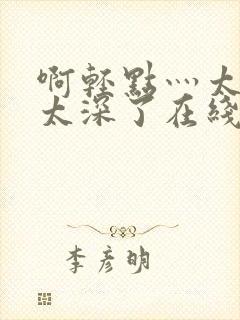 啊轻點灬太
太深了在綫
李彦明